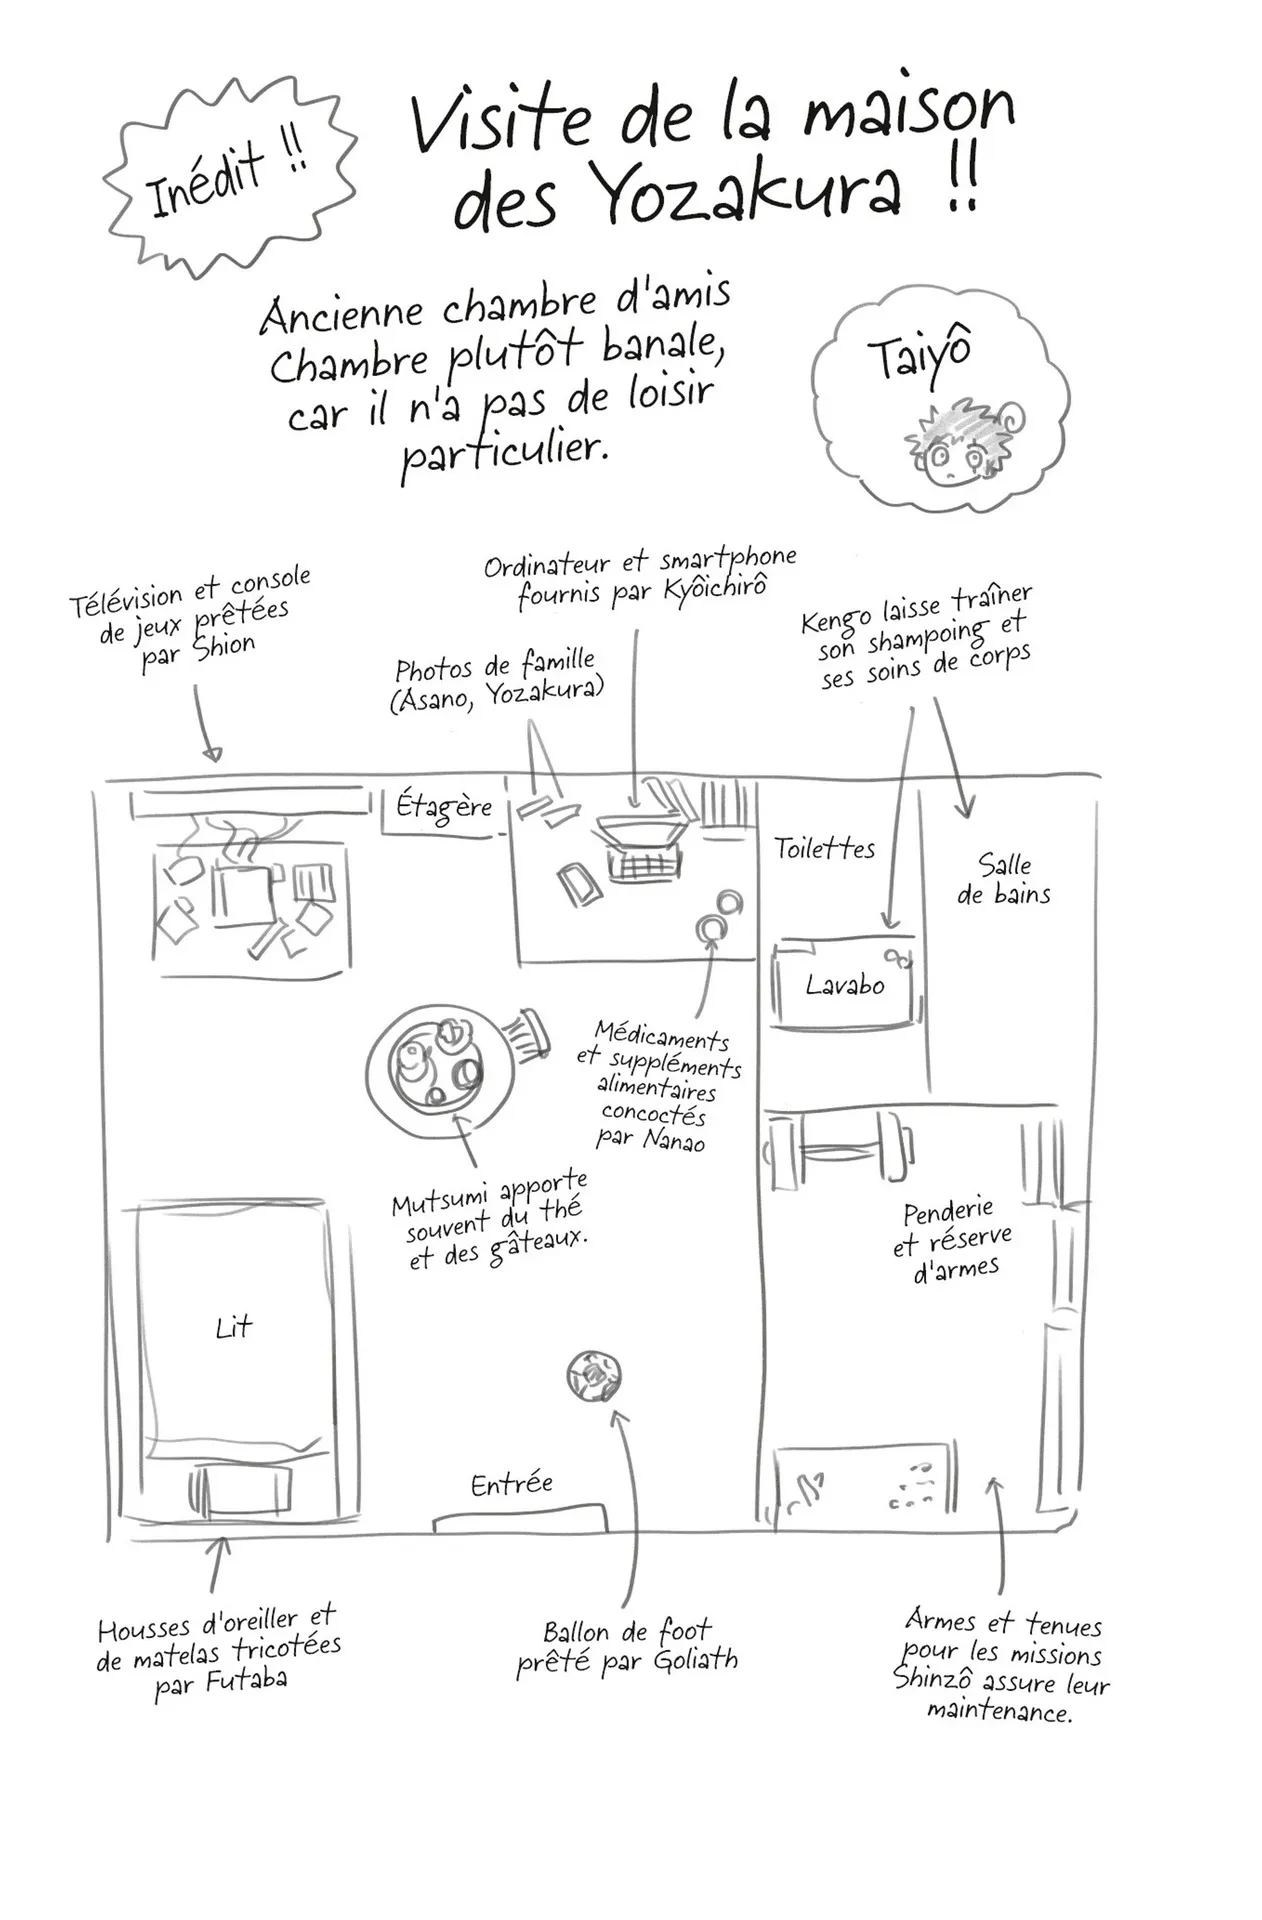 Inédit !!
Visite de la maison
des Yozakura !!
Ancienne chambre d'amis
Chambre plutôt banale,
car il n'a pas de loisir
particulier.
Taiyô
Télévision et console
de jeux prêtées
par Shion
Photos de famille
(Asano, Yozakura)
Ordinateur et smartphone
fournis par Kyôichirô
Kengo laisse traîner
son shampoing et
ses soins de corps
Étagère
Toilettes
Salle
de bains
Lavabo
Médicaments
et suppléments
alimentaires
concoctés
par Nanao
Mutsumi apporte
souvent du thé
et des gâteaux.
Penderie
et réserve
d'armes
Lit
Entrée
Housses d'oreiller et
de matelas tricotées
par Futaba
Ballon de foot
prêté par Goliath
Armes et tenues
pour les missions
Shinzô assure leur
maintenance.